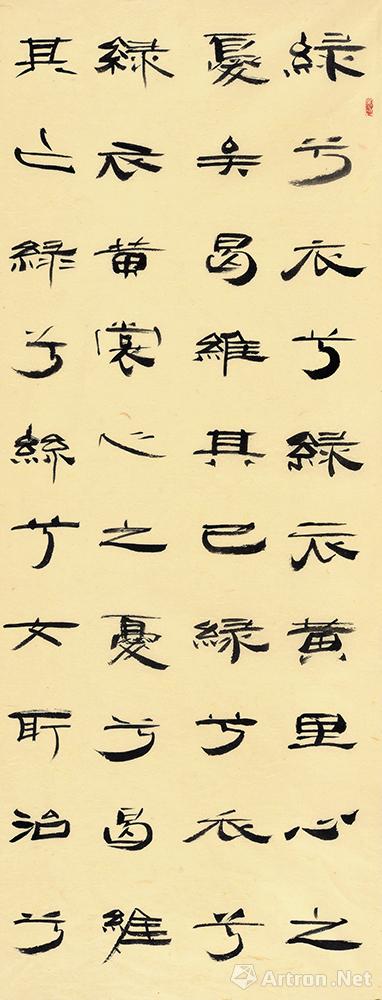 緑兮衣兮緑衣黄里心之
憂矣曷維其已緑兮衣兮
緑衣黄裳心之憂兮曷維
其亡緑兮絲兮女所治兮
Artron.Net